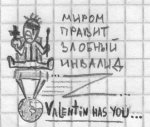 МИРОМ
ПРАВИТ
ЗЛОБНЫЙ
ИНВАЛИД
VALENTIN HAS YOU...